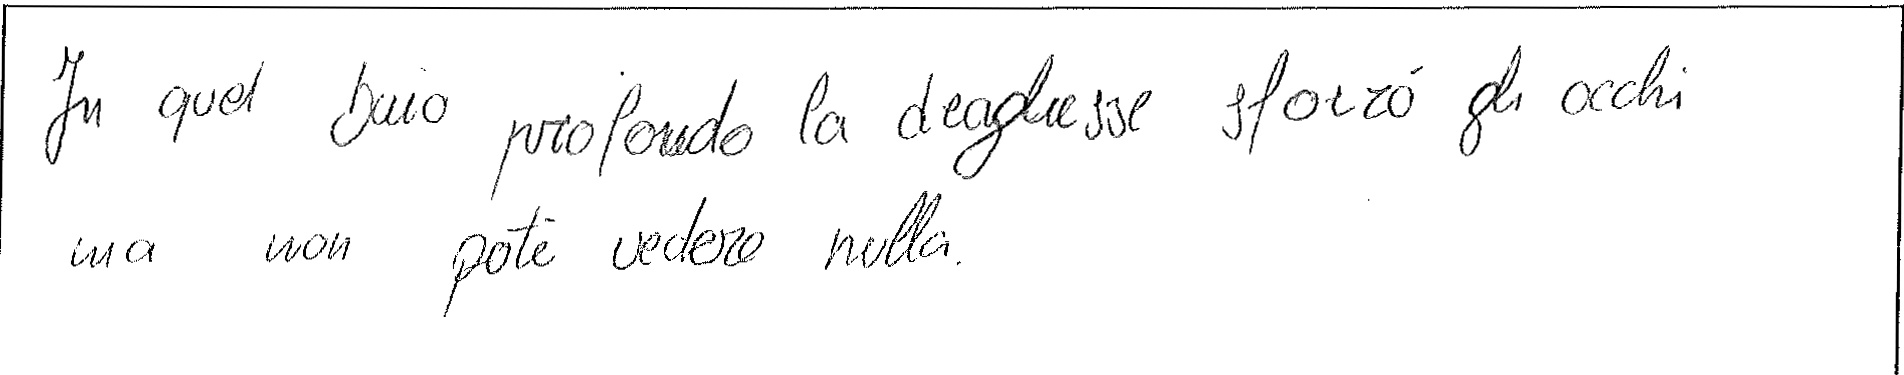 In quel buio profondo la draghesse sforzó gli occhi
ma non poté vedere nulla.